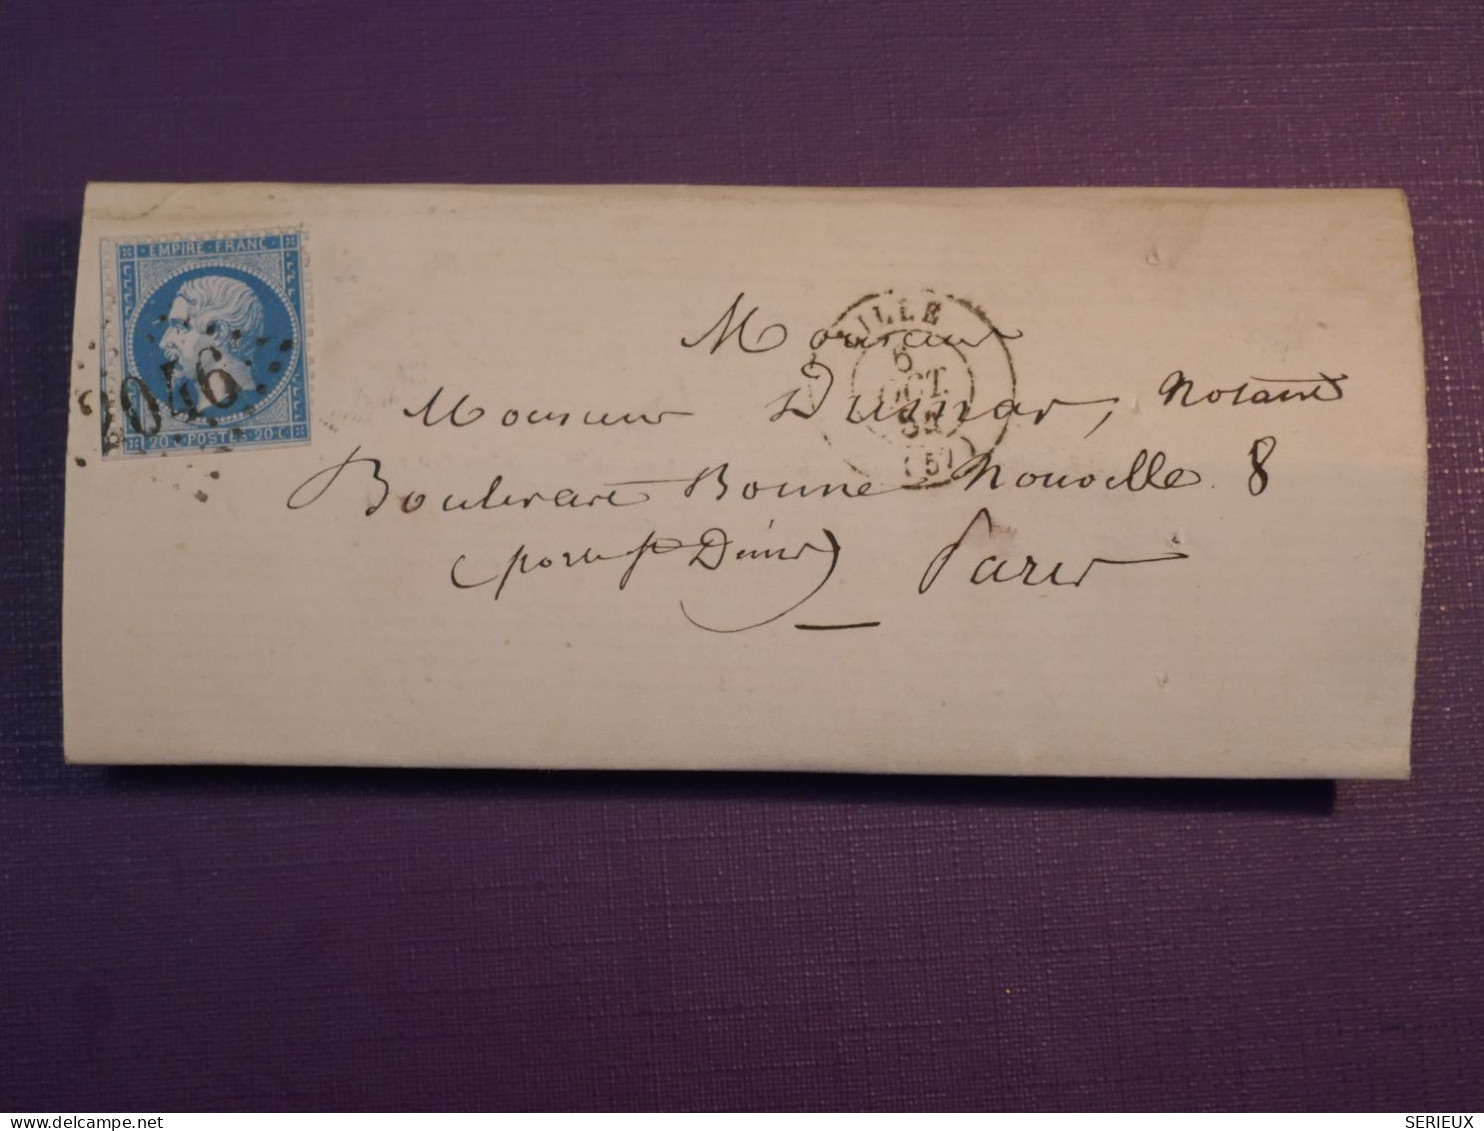 EMPIRE FRANC
2046
20 C POSTES 20 C
LILLE
5
OCT.
(57)
Monsieur
Monsieur Notaire
Boulevart Bonne Nouvelle 8
(porte St Denis) Paris
SERIEUX
delcampe.net